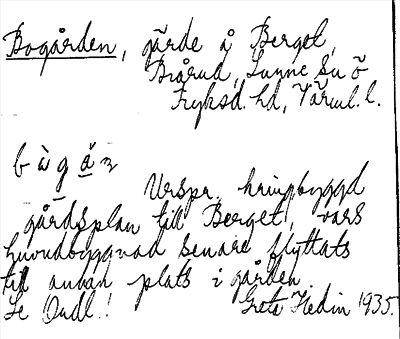 Bogården, gärde å Berget,
Brårud, Sunne sn ö
Fryksd. hd, Värml. l.
bògå̀n
Urspr. kringbyggd
gårdsplan till Berget, vars
huvudbyggnad senare flyttats
till annan plats i gården.
Se Ondl.!
Greta Hedin 1935.